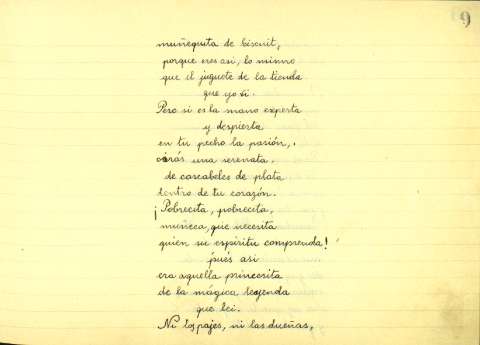 9
muñequita de biscuit,
porque eres así, lo mismo
que el juguete de la tienda
que yo vi.
Pero si es la mano experta
y despierta
en tu pecho la pasión,
oirás una serenata
de cascabeles de plata
dentro de tu corazón.
¡Pobrecita, pobrecita,
muñeca, que necesita
quien su espíritu comprenda!
pués asi
era aquella princesita
de la mágica leyenda
que leí.
Ni los pajes, ni las dueñas,